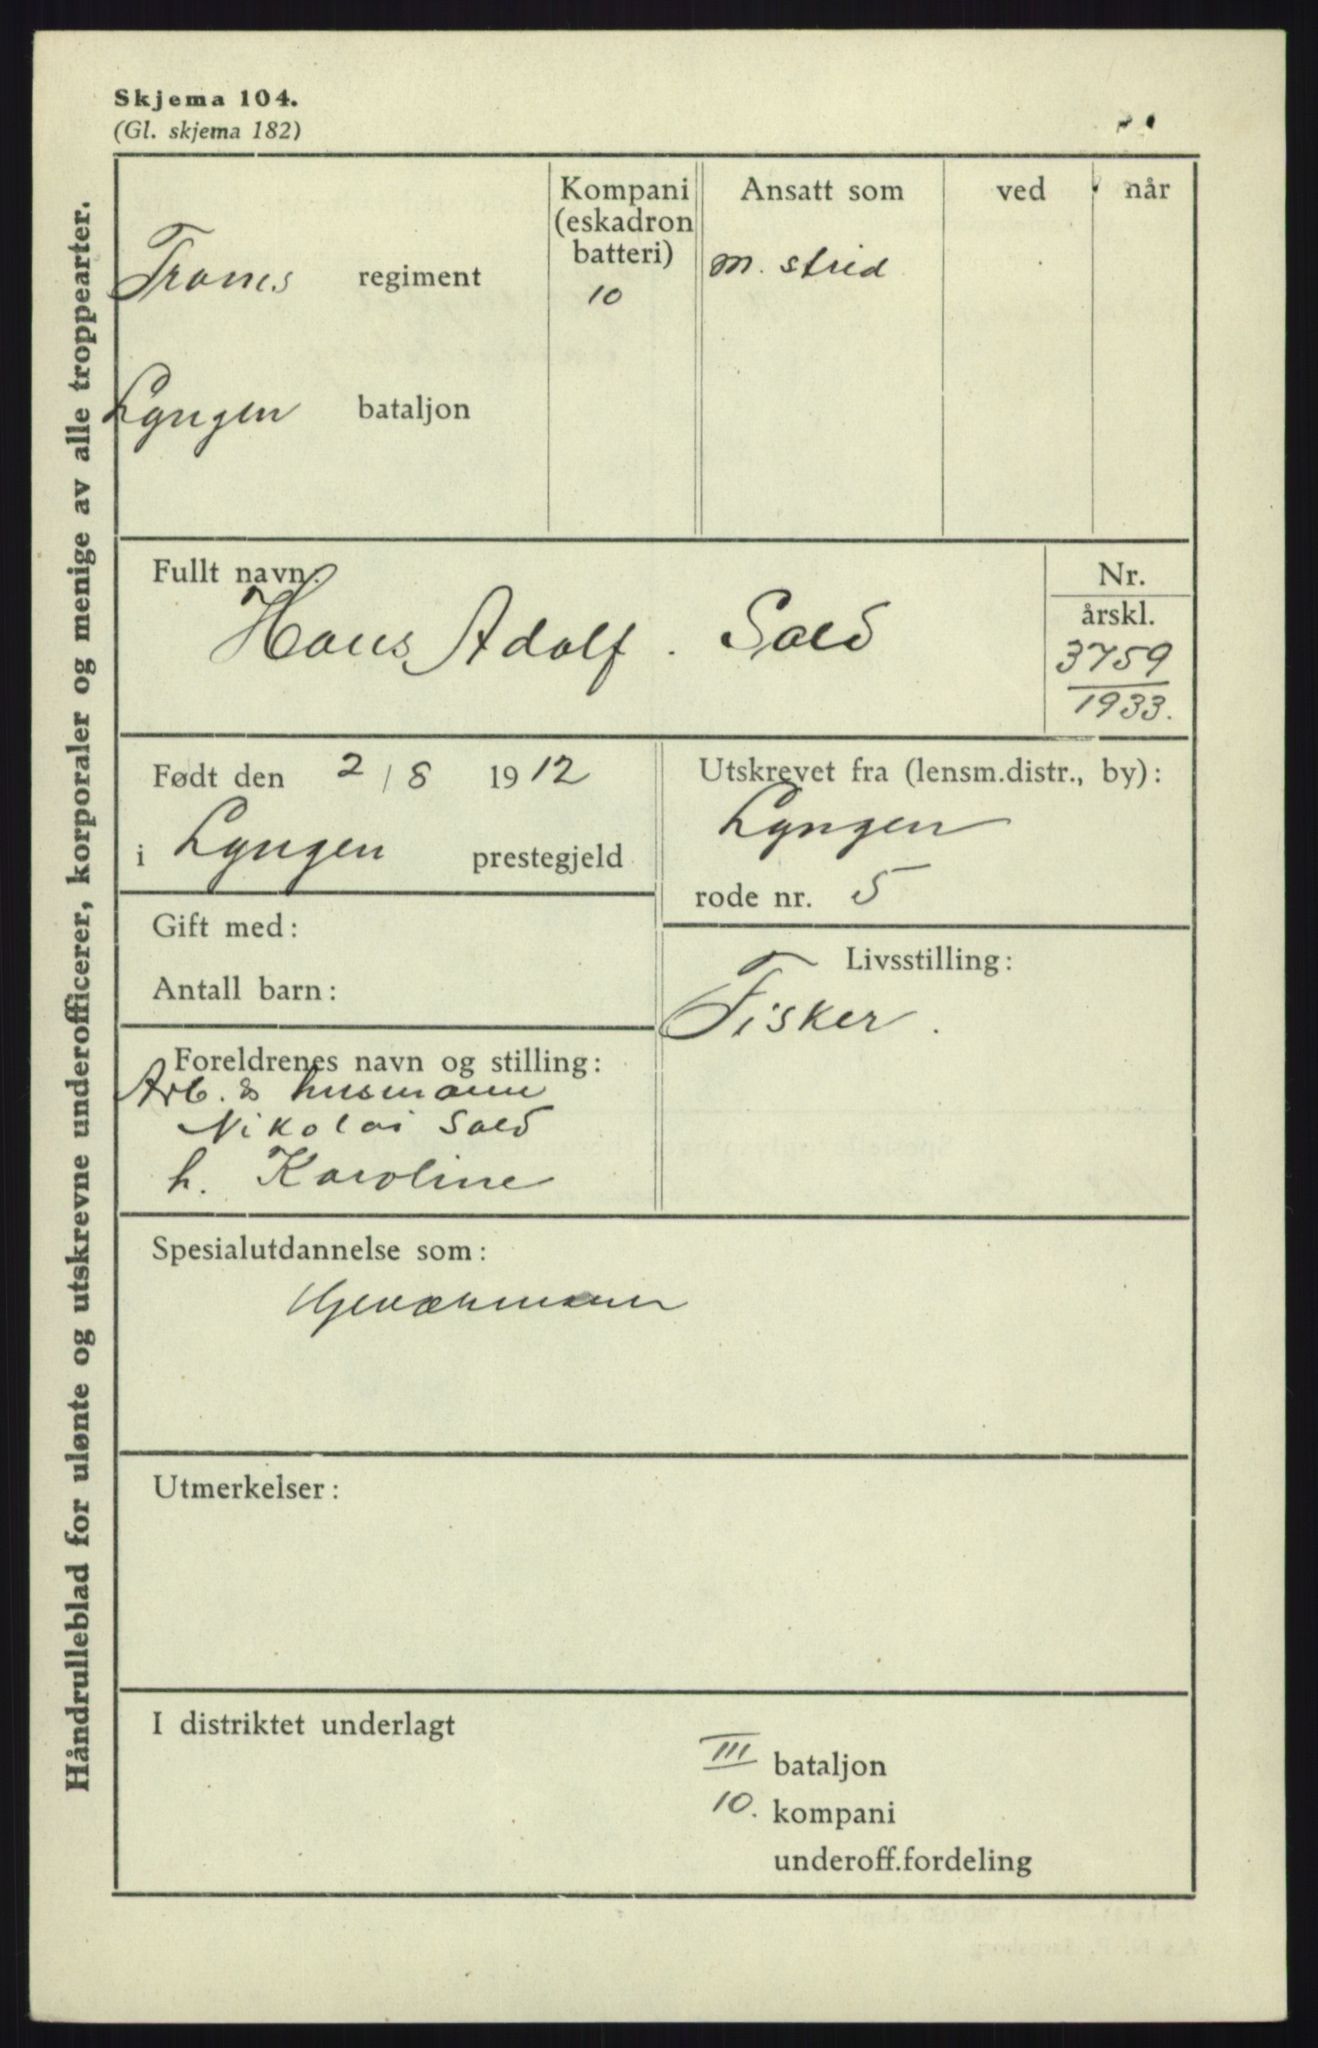 Skjema 104.
(Gl. skjema 182)
Håndrulleblad for ulønte og utskrevne underofficerer, korporaler og menige av alle troppearter.
Troms regiment
Lyngen bataljon
Kompani
(eskadron
batteri)
10
Ansatt som
m. strid
ved
når
Fullt navn:
Hans Adolf. Sold
Nr.
årskl.
3759
1933.
Født den 2/8 1912
i Lyngen prestegjeld
Utskrevet fra (lensm.distr., by):
Lyngen
rode nr. 5
Gift med:
Antall barn:
Livsstilling:
Fisker.
Foreldrenes navn og stilling:
Arb. & husmann
Nikolai Sold
h. Karoline
Spesialutdannelse som:
Utmerkelser:
I distriktet underlagt
III bataljon
10. kompani
underoff.fordeling